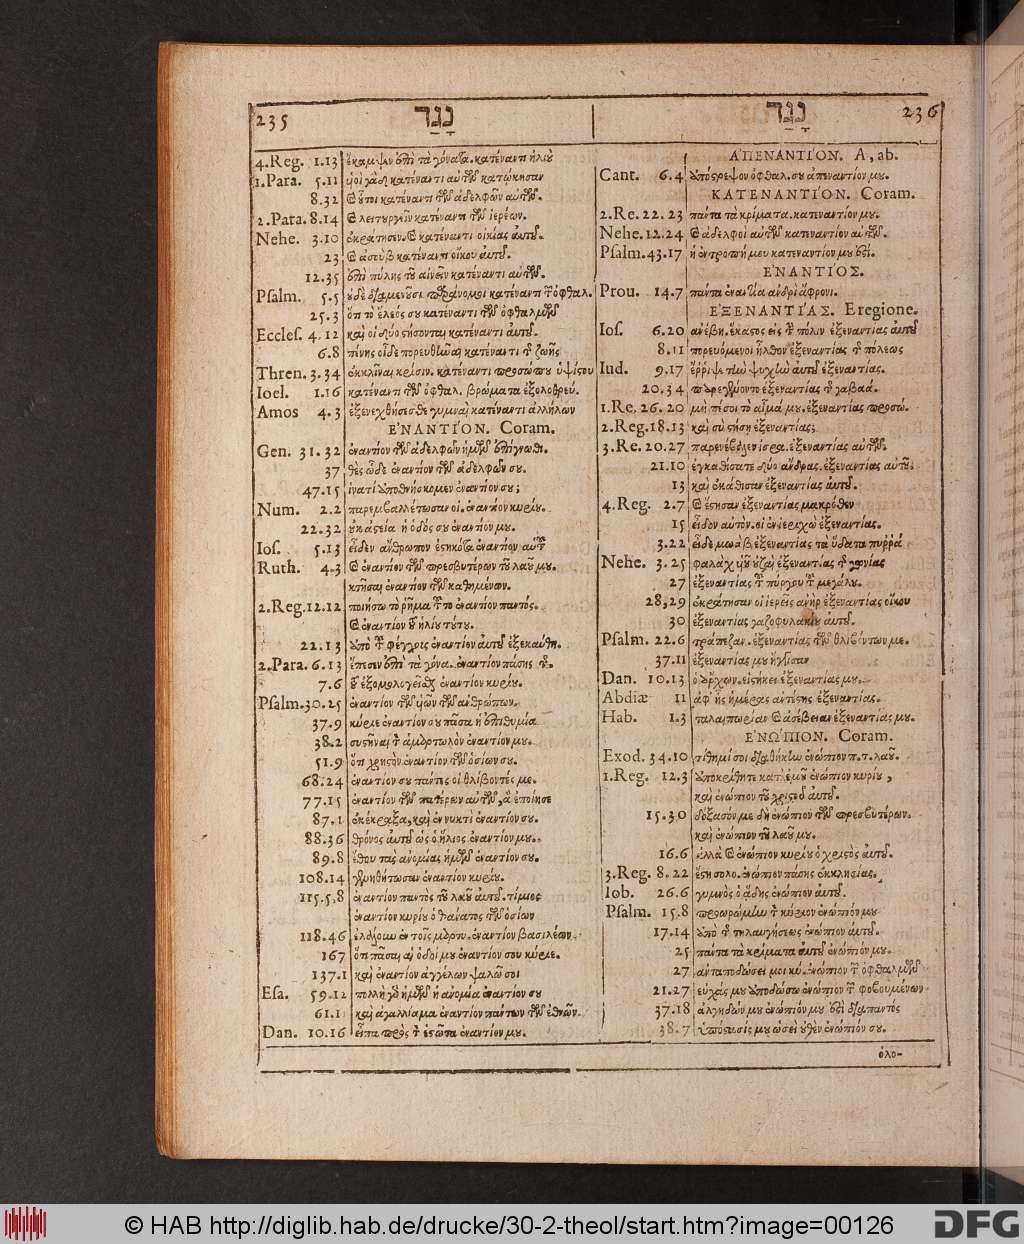 235 נָגַד
4. Reg. 1.13 ἔκαμψεν ἐπὶ τὰ γόνατα. κατέναντι ἠλιοὺ
1. Para. 5.11 υἱοὶ γὰδ κατέναντι αὐτῶν κατῴκησαν
8.32 καὶ οὗτοι κατέναντι τῶν ἀδελφῶν αὐτῶν.
2. Para. 8.14 καὶ λειτουργεῖν κατέναντι τῶν ἱερέων.
Nehe. 3.10 ἐκράτησεν. καὶ κατέναντι οἰκίας αὐτοῦ.
23 καὶ ἀσοὺβ κατέναντι οἴκου αὐτοῦ.
12.35 ἐπὶ πύλης τοῦ αἰνεῖν κατέναντι αὐτῶν.
Psalm. 5.5 οὐδὲ διαμενοῦσι παράνομοι κατέναντι τῶν ὀφθαλ.
25.3 ὅτι τὸ ἔλεός σου κατέναντι τῶν ὀφθαλμῶν
Eccles. 4.12 καὶ οἱ δύο στήσονται κατέναντι αὐτοῦ.
6.8 πένης οἶδε πορευθῆναι κατέναντι τῆς ζωῆς
Thren. 3.34 ἐκκλῖναι κρίσιν. κατέναντι προσώπου ὑψίστου
Ioel. 1.16 κατέναντι τῶν ὀφθαλ. βρώματα ἐξολοθρεύ.
Amos 4.3 ἐξενεχθήσεσθε γυμναὶ κατέναντι ἀλλήλων
ἘΝΑΝΤΊΟΝ. Coram.
Gen. 31.32 ἐναντίον τῶν ἀδελφῶν ἡμῶν ἐπίγνωθι.
37 θὲς ὧδε ἐναντίον τῶν ἀδελφῶν σου.
47.15 ἱνατί ἀποθνήσκομεν ἐναντίον σου;
Num. 2.2 παρεμβαλλέτωσαν οἱ. ἐναντίον κυρίου.
22.32 οὐκ ἀστεία ἡ ὁδός σου ἐναντίον μου.
Ios. 5.13 εἶδεν ἄνθρωπον ἑστηκότα ἐναντίον αὐτοῦ
Ruth. 4.3 καὶ ἐναντίον τῶν πρεσβυτέρων τοῦ λαοῦ μου.
κτῆσαι ἐναντίον τῶν καθημένων.
2. Reg. 12.12 ποιήσω τὸ ῥῆμα τοῦτο ἐναντίον παντός.
καὶ ἐναντίον τοῦ ἡλίου τούτου.
22.13 ἀπὸ τοῦ φέγγους ἐναντίον αὐτοῦ ἐξεκαύθη.
2. Para. 6.13 ἔπεσεν ἐπὶ τὰ γόνα. ἐναντίον πάσης τῆς.
7.6 τοῦ ἐξομολογεῖσθαι ἐναντίον κυρίου.
Psalm. 30.25 ἐναντίον τῶν υἱῶν τῶν ἀνθρώπων.
37.9 κύριε ἐναντίον σου πᾶσα ἡ ἐπιθυμία
38.2 συστῆναι τὸν ἁμαρτωλὸν ἐναντίον μου.
51.9 ὅτι χρηστὸν ἐναντίον τῶν ὁσίων σου.
68.24 ἐναντίον σου πάντες οἱ θλίβοντές με.
77.15 ἐναντίον τῶν πατέρων αὐτῶν, ἃ ἐποίησε
87.1 ἐκέκραξα, καὶ ἐν νυκτὶ ἐναντίον σου.
88.36 θρόνος αὐτοῦ ὡς ὁ ἥλιος ἐναντίον μου.
89.8 ἔθου τὰς ἀνομίας ἡμῶν ἐναντίον σου.
108.14 γενηθήτωσαν ἐναντίον κυρίου.
115.5,8 ἐναντίον παντὸς τοῦ λαοῦ αὐτοῦ. τίμιος
ἐναντίον κυρίου ὁ θάνατος τῶν ὁσίων
118.46 ἐλάλουν ἐν τοῖς μαρτυ. ἐναντίον βασιλέων
167 ὅτι πᾶσαι αἱ ὁδοί μου ἐναντίον σου κύριε.
137.1 καὶ ἐναντίον ἀγγέλων ψαλῶ σοι
Esa. 59.12 πολλὴ γὰρ ἡμῶν ἡ ἀνομία ἐναντίον σου
61.1 καὶ ἀγαλλίαμα ἐναντίον πάντων τῶν ἐθνῶν.
Dan. 10.16 εἶπα πρὸς τὸν ἑστῶτα ἐναντίον μου.
נָגַד 236
ἈΠΕΝΑΝΤΊΟΝ. A, ab.
Cant. 6.4 ἀπόστρεψον ὀφθαλ. σου ἀπεναντίον μου.
ΚΑΤΕΝΑΝΤΊΟΝ. Coram.
2. Re. 22.23 πάντα τὰ κρίματα. κατεναντίον μου.
Nehe. 12.24 καὶ ἀδελφοὶ αὐτῶν κατεναντίον αὐτῶν.
Psalm. 43.17 ἡ ἐντροπή μου κατεναντίον μου ἐστί.
ἘΝΑΝΤΊΟΣ.
Prou. 14.7 πάντα ἐναντία ἀνδρὶ ἄφρονι.
ἘΞΕΝΑΝΤΊΑΣ. Eregione.
Ios. 6.20 ἀνέβη. ἕκαστος εἰς τὴν πόλιν ἐξεναντίας αὐτοῦ
8.11 πορευόμενοι ἦλθον ἐξεναντίας τῆς πόλεως
Iud. 9.17 ἔῤῥιψε τὴν ψυχὴν αὐτοῦ ἐξεναντίας.
20.34 παρεγένοντο ἐξεναντίας τῆς γαβαά.
1. Re. 26.20 μὴ πέσοι τὸ αἷμά μου. ἐξεναντίας προσώ.
2. Reg. 18.13 καὶ σὺ στήσῃ ἐξεναντίας;
3. Re. 20.27 παρενέβαλεν ἰσρα. ἐξεναντίας αὐτῶν.
21.10 ἐγκαθίσατε δύο ἄνδρας. ἐξεναντίας αὐτοῦ.
13 καὶ ἐκάθισαν ἐξεναντίας αὐτοῦ.
4. Reg. 2.7 καὶ ἔστησαν ἐξεναντίας μακρόθεν
15 εἶδον αὐτὸν. οἱ ἐν ἱεριχὼ ἐξεναντίας.
3.22 εἶδε μωὰβ ἐξεναντίας τὰ ὕδατα πυῤῥά
Nehe. 3.25 φαλὰχ υἱοῦ οὐζαὶ ἐξεναντίας τῆς γωνίας
27 ἐξεναντίας τοῦ πύργου τοῦ μεγάλου.
28,29 ἐκράτησαν οἱ ἱερεῖς ἀνὴρ ἐξεναντίας οἴκου
30 ἐξεναντίας γαζοφυλακίου αὐτοῦ.
Psalm. 22.6 τράπεζαν. ἐξεναντίας τῶν θλιβόντων με.
37.11 ἐξεναντίας μου ἤγγισαν
Dan. 10.13 ὁ ἄρχων. εἱστήκει ἐξεναντίας μου.
Abdiæ 11 ἀφ' ἧς ἡμέρας ἀντέστης ἐξεναντίας.
Hab. 1.3 ταλαιπωρίαν καὶ ἀσέβειαν ἐξεναντίας μου.
ἘΝΏΠΙΟΝ. Coram.
Exod. 34.10 τίθημί σοι διαθήκην ἐνώπιον π.τ. λαοῦ.
1. Reg. 12.3 ἀποκρίθητε κατ' ἐμοῦ ἐνώπιον κυρίου,
καὶ ἐνώπιον τοῦ χριστοῦ αὐτοῦ.
15.30 δόξασόν με δὴ ἐνώπιον τῶν πρεσβυτέρων.
καὶ ἐνώπιον τοῦ λαοῦ μου.
16.6 ἀλλὰ καὶ ἐνώπιον κυρίου ὁ χριστὸς αὐτοῦ.
3. Reg. 8.22 ἔστη σολο. ἐνώπιον πάσης ἐκκλησίας.
Iob. 26.6 γυμνὸς ὁ ᾅδης ἐνώπιον αὐτοῦ.
Psalm. 15.8 προωρώμην τὸν κύριον ἐνώπιόν μου
17.14 ἀπὸ τῆς τηλαυγήσεως ἐνώπιον αὐτοῦ.
25 πάντα τὰ κρίματα αὐτοῦ ἐνώπιόν μου.
27 ἀνταποδώσει μοι κύ. ἐνώπιον τῶν ὀφθαλμῶν
21.27 εὐχάς μου ἀποδώσω ἐνώπιον τῶν φοβουμένων
37.18 ἀλγηδών μου ἐνώπιόν μου ἐστὶ διαπαντός
38.7 ὑπόστασίς μου ὡσεὶ οὐθὲν ἐνώπιόν σου.
ὁλο-
© HAB http://diglib.hab.de/drucke/30-2-theol/start.htm?image=00126
DFG